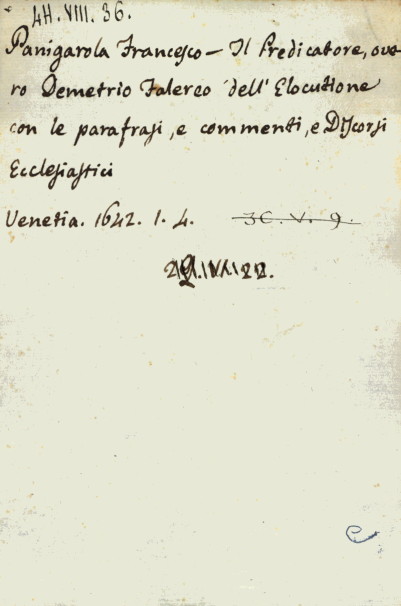 4H.VIII.36.
Panigarola Francesco – Il Predicatore, ove
ro Demetrio Falereo dell'Elocutione
con le parafrasi, e commenti, e Discorsi
Ecclesiastici
Venetia. 1642. 1. 4. 3C.V.9.